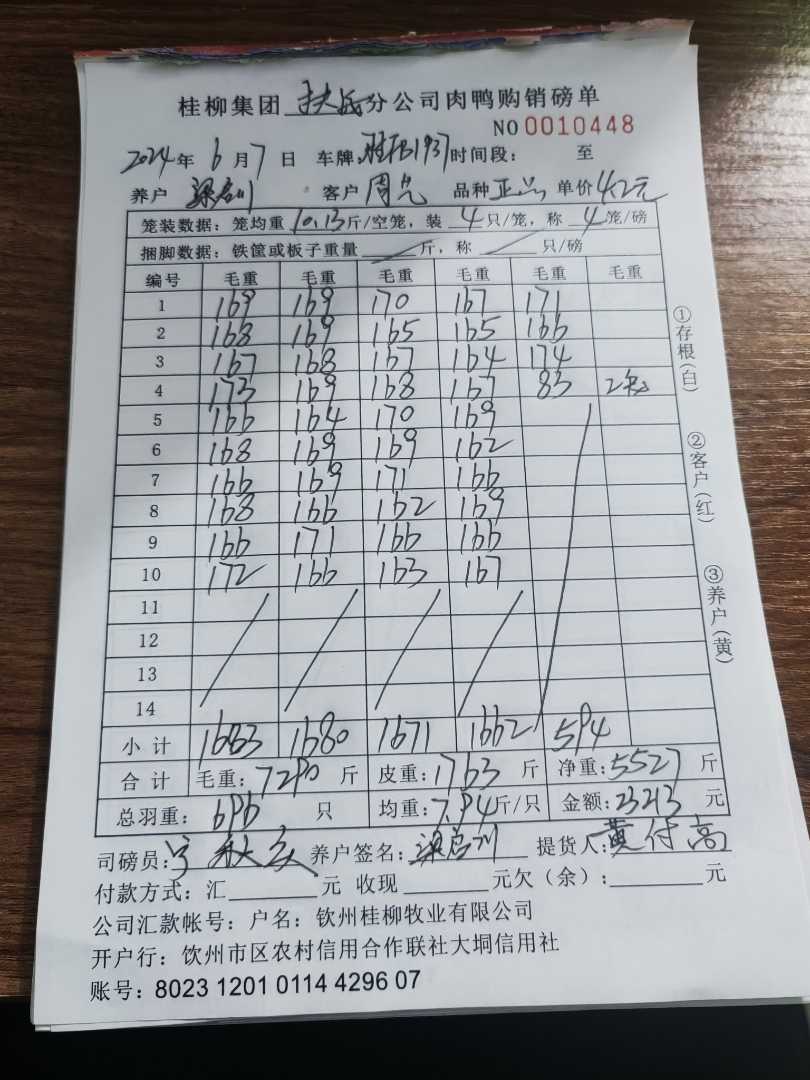 桂柳集团 扶绥 分公司肉鸭购销磅单
NO 0010448
2024 年 6 月 7 日 车牌 1937 时间段： 至
养户 客户 周 品种 正品 单价 4.2元
笼装数据：笼均重 10.13 斤/空笼，装 4 只/笼，称 4 笼/磅
捆脚数据：铁筐或板子重量 斤，称 只/磅
编号 毛重 毛重 毛重 毛重 毛重 毛重
1 169 169 170 167 171
2 168 169 165 165 166
3 167 168 167 164 174
4 173 169 168 167 83 2笼
5 166 164 170 169
6 168 169 169 162
7 166 169 171 166
8 168 166 162 169
9 166 171 166 166
10 172 166 163 167
11
12
13
14
小计 1683 1680 1671 1662 594
合计 毛重：7290 斤 皮重：1763 斤 净重：5527 斤
总羽重：696 只 均重：7.94 斤/只 金额：23213 元
司磅员： 养户签名： 提货人：黄付高
付款方式：汇 元 收现 元欠（余）： 元
公司汇款帐号：户名：钦州桂柳牧业有限公司
开户行：饮州市区农村信用合作联社大垌信用社
账号：8023 1201 0114 4296 07
①存根（白）
②客户（红）
③养户（黄）